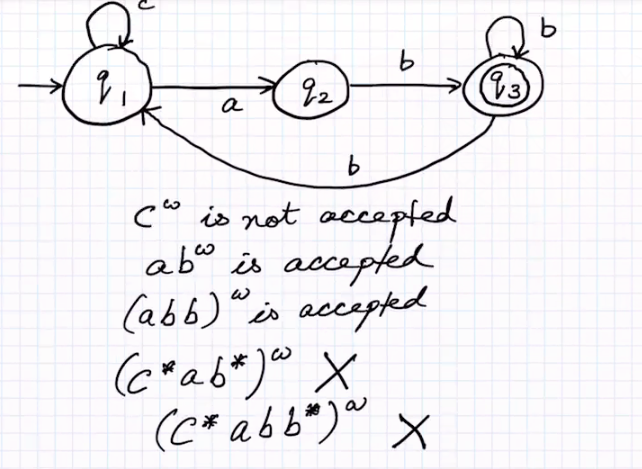 c
b
q1
a
q2
b
q3
b
c^ω is not accepted
ab^ω is accepted
(abb)^ω is accepted
(c*ab*)^ω X
(c*abb*)^ω X